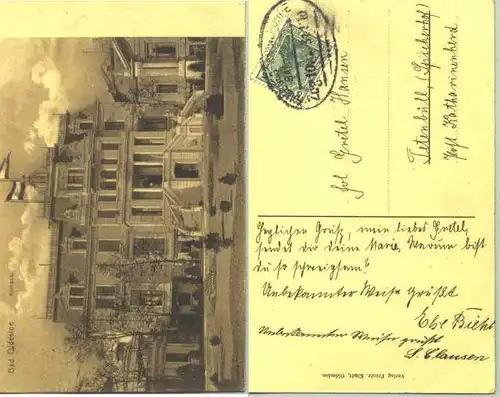 Bad Oldesloe Kurhaus
Frl. Gretel Hansen
Tetenbüll, (Spiekerhof)
Post Katharinenherd
Herzlichen Gruß, mein liebes Gretel,
sendet dir deine Marie, Warum bist
du so schweigsam?
Unbekannter Weise grüßt
Unbekannter Weise grüßt
S. Clausen
Verlag Friedr. Oldesloe.